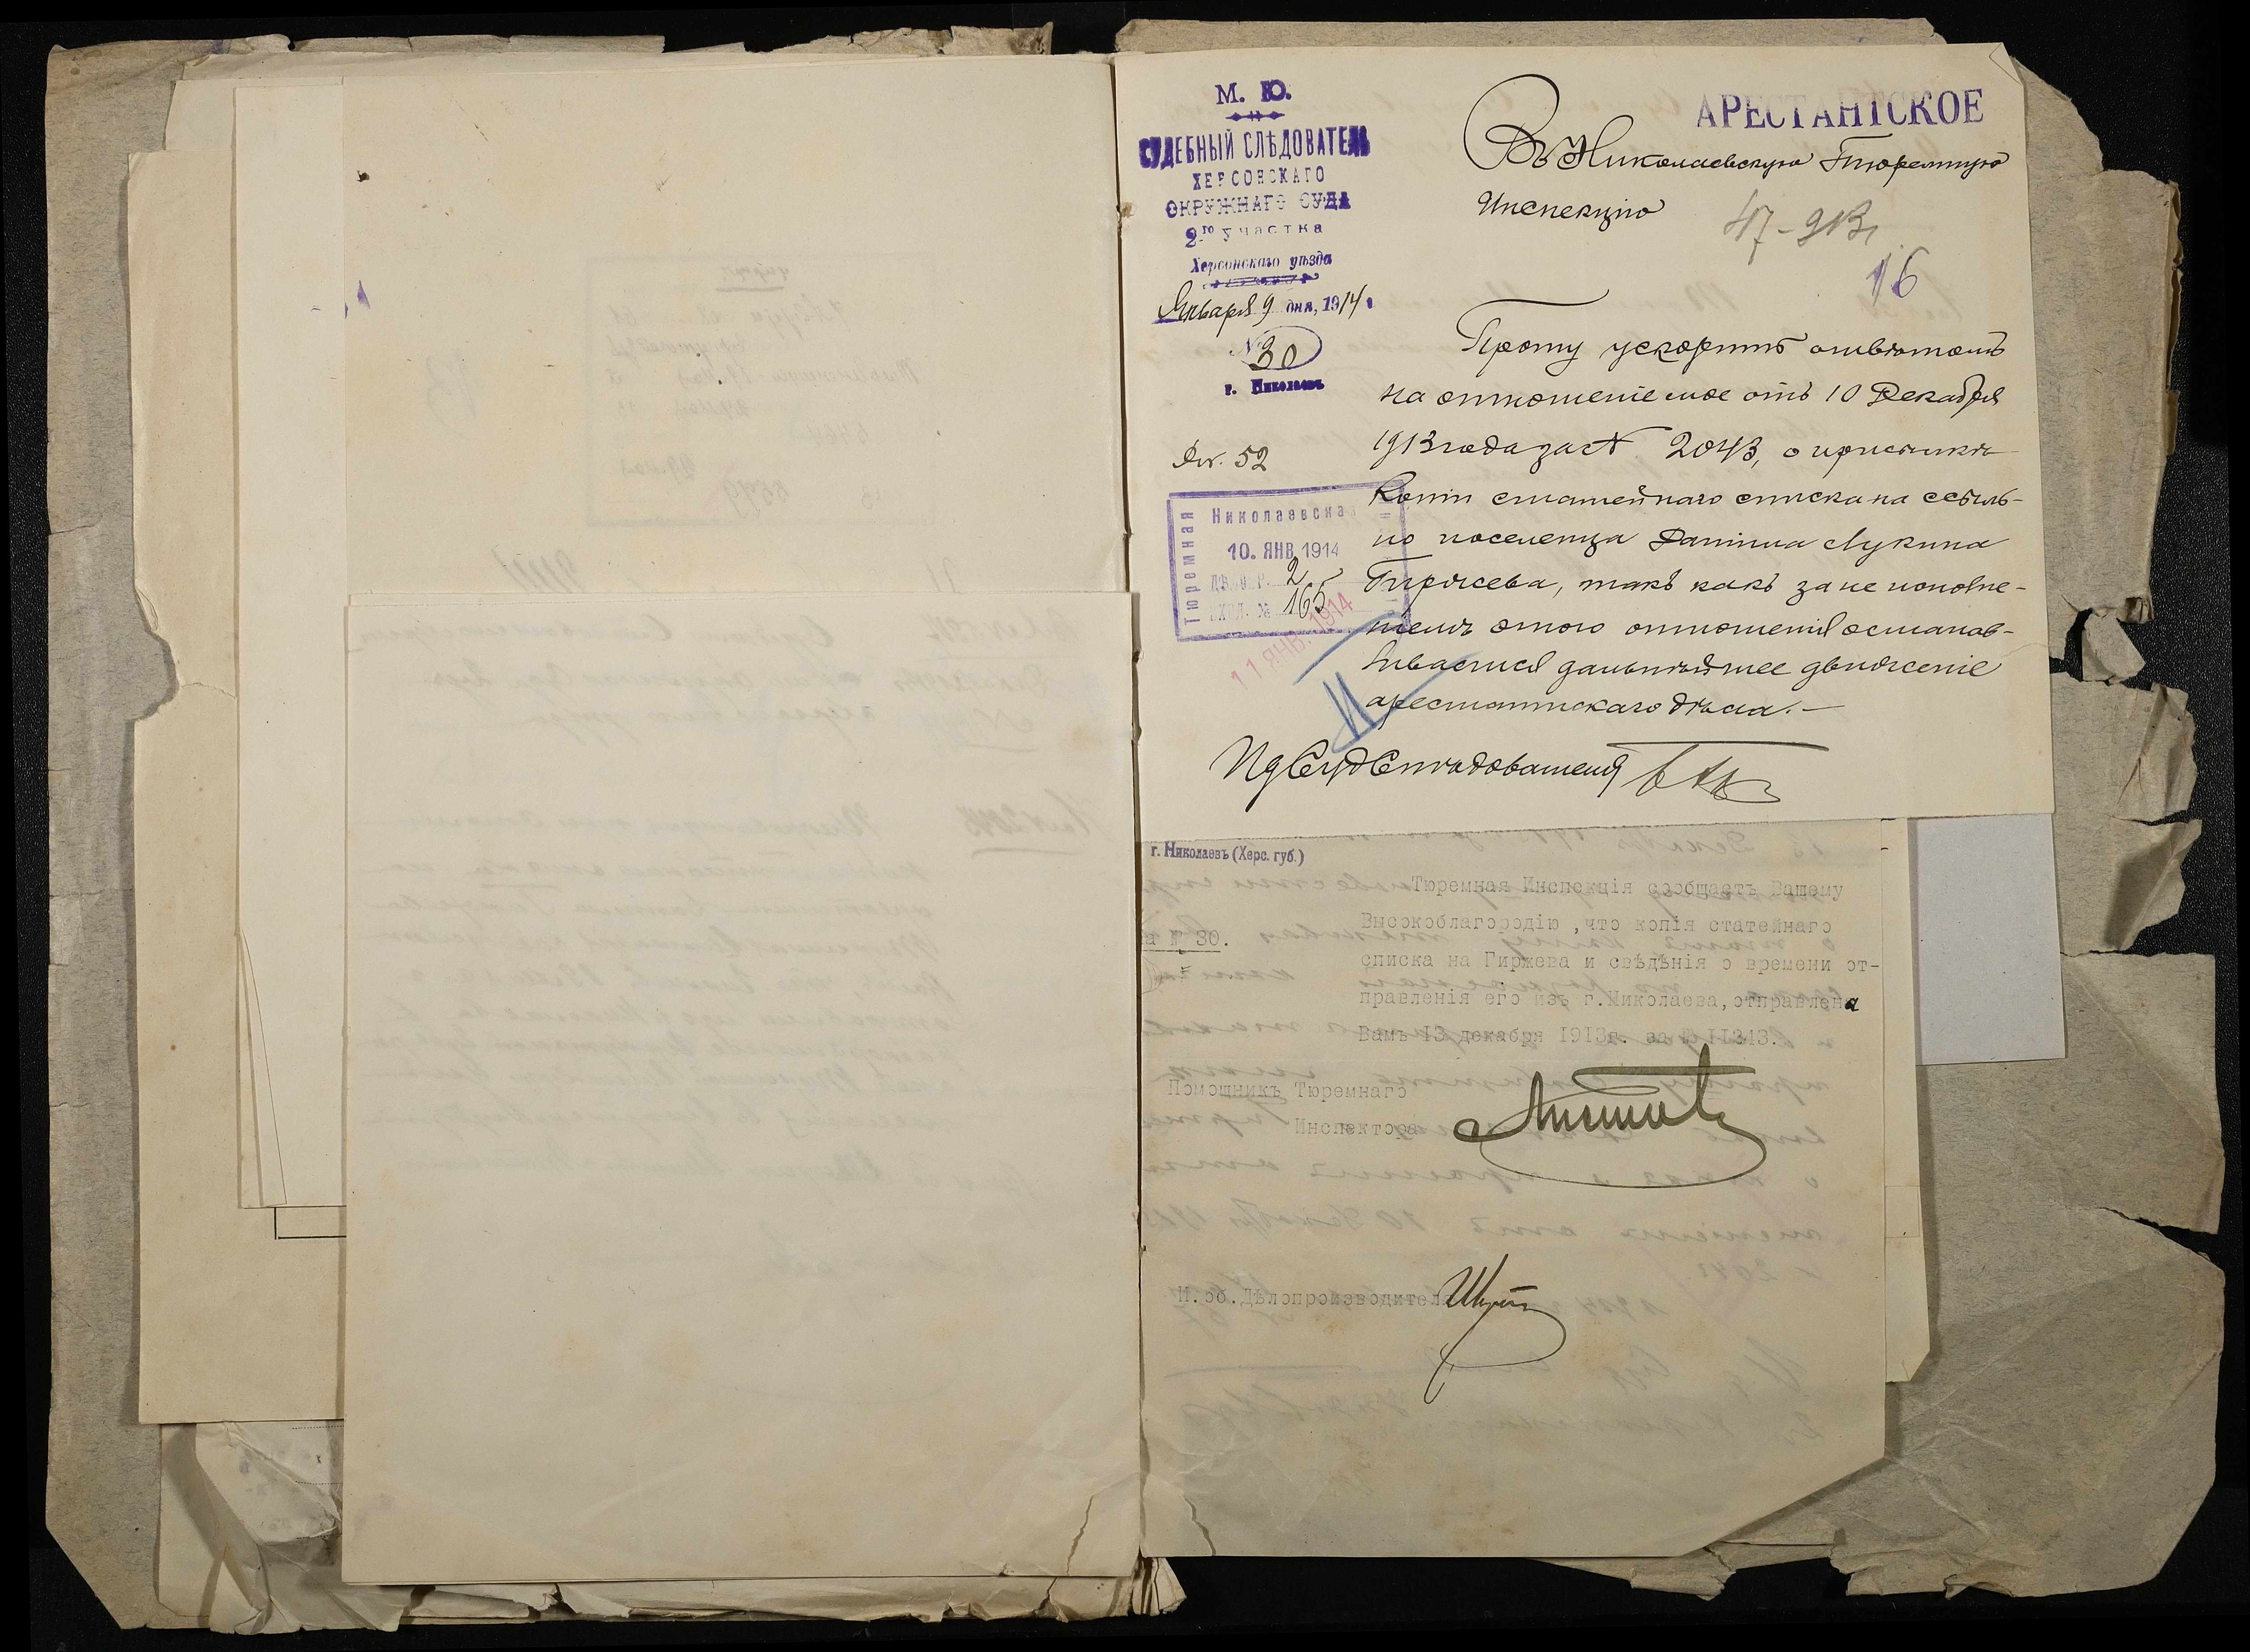 М. Ю.
СУДЕБНЫЙ СЛѢДОВАТЕЛЬ
ХЕРСОНСКАГО
ОКРУЖНАГО СУДА
2го участка
Херсонскаго уѣзда
Января 9 дня, 1914
№ 30
г. Николаевъ
АРЕСТАНТСКОЕ
Въ Николаевскую Тюремную
Инспекцію
47-913
16
Прошу ускорить отвѣтомъ
на отношеніе мое отъ 10 Декабря
1913 года за № 2043, о присылкѣ
копіи статейнаго списка на ссыль-
но поселенца Даніила Лукина
Гиржева, такъ какъ за не исполне-
ніемъ этого отношенія останав-
ливается дальнѣйшее движеніе
арестантскаго дѣла.—
52
Тюремная
Николаевская
10. ЯНВ 1914
2
165
11 ЯНВ. 1914
Ид Суд Слѣдователя
г. Николаевъ (Херс. губ.)
№ 30.
Тюремная Инспекція сообщаетъ Вашему
Высокоблагородію, что копія статейнаго
списка на Гиржева и свѣдѣнія о времени от-
правленія его изъ г.Николаева, отправлена
Вамъ 13 декабря 1913г. за № 11313.
Помощникъ Тюремнаго
Инспектора
И.об.Дѣлопроизводителя